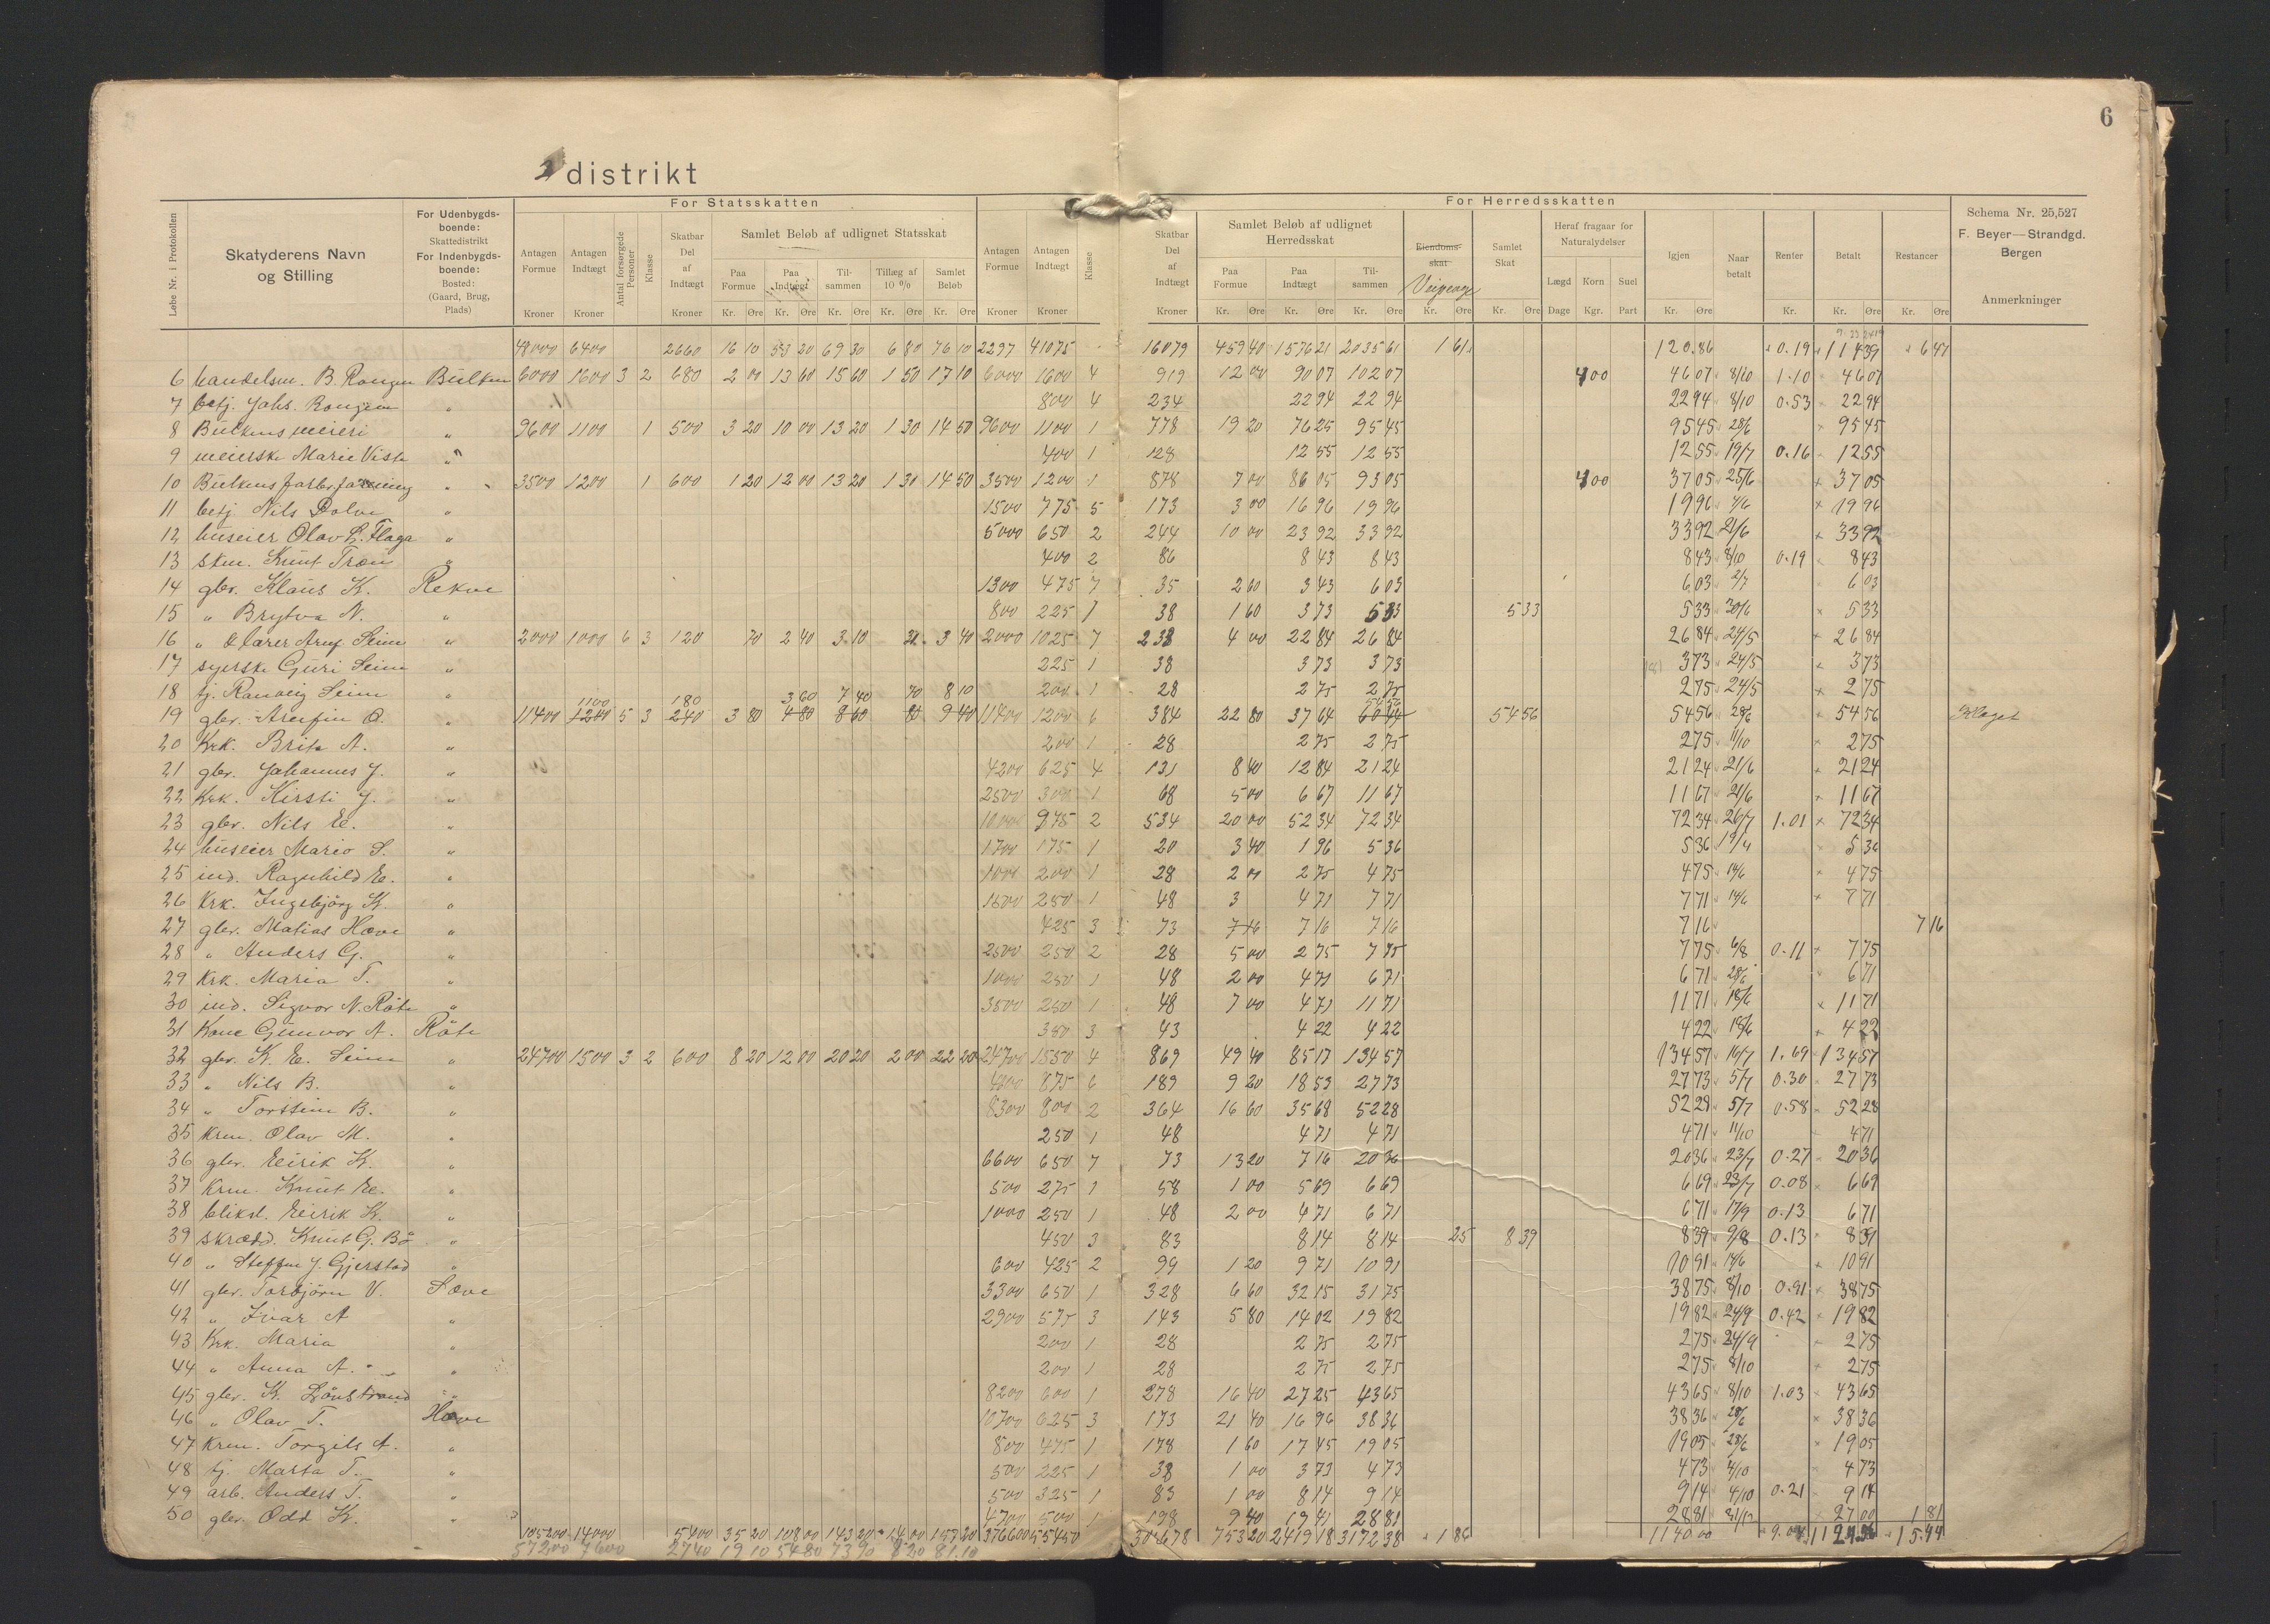 6
2 distrikt
For Statsskatten
For Herredsskatten
Løbe Nr. i Protokollen
Skatyderens Navn og Stilling
For Udenbygdsboende: Skattedistrikt For Indenbygdsboende: Bosted: (Gaard, Brug, Plads)
Antagen Formue Kroner
Antagen Indtægt Kroner
Antal forsørgede Personer
Klasse
Skatbar Del af Indtægt Kroner
Samlet Beløb af udlignet Statsskat
Paa Formue Kr. Øre
Paa Indtægt Kr. Øre
Tilsammen Kr. Øre
Tillæg af 10 % Kr. Øre
Samlet Beløb Kr. Øre
Antagen Formue Kroner
Antagen Indtægt Kroner
Klasse
Skatbar Del af Indtægt Kroner
Samlet Beløb af udlignet Herredsskat
Paa Formue Kr. Øre
Paa Indtægt Kr. Øre
Tilsammen Kr. Øre
Eiendomsskat Kr. Øre
Samlet Skat Kr. Øre
Heraf fragaar for Naturalydelser
Lægd Dage
Korn Kgr.
Suel Part
Igjen Kr. Øre
Naar betalt
Renter Kr.
Betalt Kr. Øre
Restancer Kr. Øre
Schema Nr. 25,527
F. Beyer—Strandgd.
Bergen
Anmerkninger
48000 6400 2660 16 10 53 20 69 30 6 80 76 10 2297 41075 16079 459 40 1576 21 2035 61 1 61 120.86 0.19 114 39 6 47
6 handelsm. B. Rongen Bulken 6000 1600 3 2 680 2 00 13 60 15 60 1 50 17 10 6000 1600 4 919 12 00 90 07 102 07 4 00 46 07 8/10 1.10 46 07
7 betj. Johs. Rongen " 800 4 234 22 94 22 94 22 94 8/10 0.53 22 94
8 Bulkens meieri " 9600 1100 1 500 3 20 10 00 13 20 1 30 14 50 9600 1100 1 778 19 20 76 25 95 45 95 45 28/6 95 45
9 meierske Marie Viste " 400 1 128 12 55 12 55 12 55 19/7 0.16 12 55
10 Bulkens forbr.forening " 3500 1200 1 600 1 20 12 00 13 20 1 30 14 50 3500 1200 1 878 7 00 86 05 93 05 4 00 37 05 25/6 37 05
11 betj. Nils Dolve " 1500 775 5 173 3 00 16 96 19 96 19 96 19 96
12 huseier Olav L. Flaga " 5000 650 2 244 10 00 23 92 33 92 33 92 21/6 33 92
13 skm. Knut Træn " 400 2 86 8 43 8 43 8 43 8/10 0.19 8 43
14 gbr. Klaus K. Rekve 1300 475 7 35 2 60 3 43 6 03 6 03 2/7 6 03
15 " Brytva N. " 800 225 1 38 1 60 3 73 5 33 5 33 5 33 30/6 5 33
16 " & lærer Arnf. Seim " 2000 1000 6 3 120 70 2 40 3 10 3 40 2000 1025 7 238 4 00 22 84 26 84 26 84 24/5 26 84
17 syerske Guri Seim " 225 1 38 3 73 3 73 3 73 24/5 3 73
18 tj. Ranveig Seim " 200 1 28 2 75 2 75 2 75 24/5 2 75
1100 180 3 60 7 40 70 8 10 54 56
19 gbr. Arnfin O. " 11400 1200 5 3 240 3 80 4 80 8 60 80 9 40 11400 1200 6 384 22 80 37 64 60 44 54 56 54 56 28/6 54 56
20 Krk. Brita A. " 200 1 28 2 75 2 75 2 75 11/10 2 75
21 gbr. Johannes J. " 4200 625 4 131 8 40 12 84 21 24 21 24 21/6 21 24
22 Krk. Kirsti J. " 2500 300 1 68 5 00 6 67 11 67 11 67 21/6 11 67
23 gbr. Nils E. " 975 2 534 20 00 52 34 72 34 72 34 26/7 1.01 72 34
24 huseier Mario S. " 1700 175 1 20 3 40 1 96 5 36 5 36 5 36
25 ind. Ragnhild E. " 1000 200 1 28 2 00 2 75 4 75 4 75 14/6 4 75
26 Krk. Ingebjörg K. " 1500 250 1 48 3 4 71 7 71 7 71 14/6 7 71
27 gbr. Matias Hæve " 425 3 73 7 16 7 16 7 16 7 16 7 16
28 " Anders G. " 2500 250 2 28 5 00 2 75 7 75 7 75 6/8 0.11 7 75
29 Krk. Maria T. " 1000 250 1 48 2 00 4 71 6 71 6 71 28/6 6 71
30 ind. Sigvor N. Røte " 3500 250 1 48 7 00 4 71 11 71 11 71 18/6 11 71
31 Kone Gunvor A. Røte 350 3 43 4 22 4 22 4 22 18/6 4 22
32 gbr. K. E. Seim " 24700 1500 3 2 600 8 20 12 00 20 20 2 00 22 20 24700 1550 4 869 49 40 85 17 134 57 134 57 16/7 1.69 134 57
33 " Nils B. " 4600 875 6 189 9 20 18 53 27 73 27 73 5/7 0.30 27 73
34 " Torstein B. " 8300 800 2 364 16 60 35 68 52 28 52 28 5/7 0.58 52 28
35 Krm. Olav M. " 250 1 48 4 71 4 71 4 71 11/10 4 71
36 gbr. Eirik K. " 6600 650 7 73 13 20 7 16 20 36 20 36 23/7 0.27 20 36
37 Krm. Knut E. " 500 275 1 58 1 00 5 69 6 69 6 69 23/7 0.08 6 69
38 bliksl. Eirik K. " 1000 250 1 48 2 00 4 71 6 71 6 71 17/9 0.13 6 71
39 skrædd. Knut G. Bø " 450 3 83 8 14 8 14 25 8 39 8 39 9/8 0.13 8 39
40 " Steffen J. Gjerstad " 600 425 2 99 1 20 9 71 10 91 10 91 14/6 10 91
41 gbr. Torbjörn V. Sæve 3300 650 1 328 6 60 32 15 31 75 38 75 8/10 0.91 38 75
42 " Ivar A " 2900 575 3 143 5 80 14 02 19 82 19 82 24/9 0.42 19 82
43 Krk. Maria " 200 1 28 2 75 2 75 2 75 24/9 2 75
44 " Anna A. " 200 1 28 2 75 2 75 2 75 8/10 2 75
45 gbr. K. Lönstrand " 8200 600 1 278 16 40 27 25 43 65 43 65 8/10 1.03 43 65
46 " Olav T. Hæve 10700 625 3 173 21 40 16 96 38 36 38 36 28/6 38 36
47 Krm. Torgils A. " 800 475 1 178 1 60 17 45 19 05 19 05 28/6 19 05
48 tj. Marta T. " 500 225 1 38 1 00 3 73 4 73 4 73 4/10 4 73
49 arb. Anders T. " 500 325 1 83 1 00 8 14 9 14 9 14 4/10 0.21 9 14
50 gbr. Odd K. " 4700 500 1 198 9 40 19 41 28 81 28 81 27 00 1 81
105200 14000 5400 35 20 108 00 143 20 14 00 157 20 376600 55450 753 20 2419 18 3172 38 1 86 1140 00 15.44
57200 7600 2740 19 10 54 80 73 90 8 20 81.10